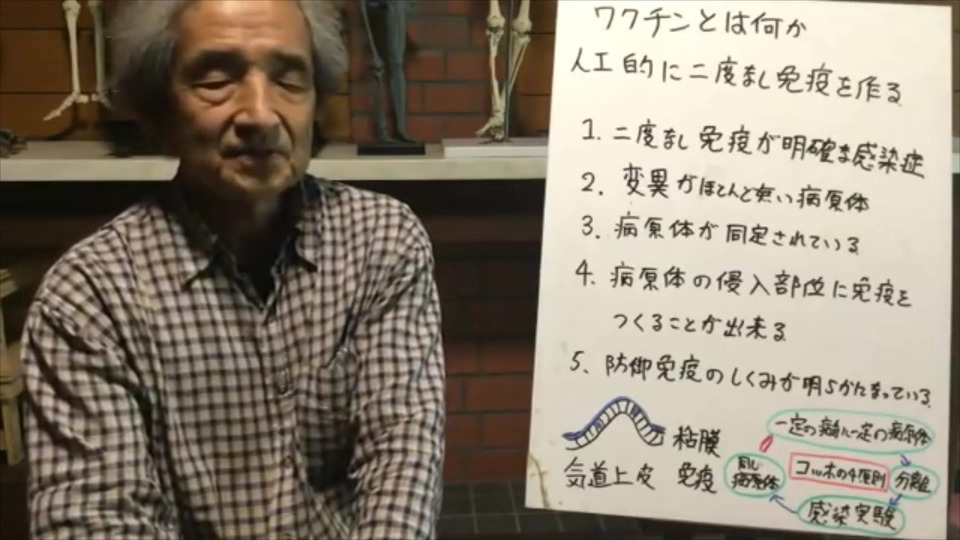 ワクチンとは何か
人工的に二度なし免疫を作る
1. 二度なし免疫が明確な感染症
2. 変異がほとんど無い病原体
3. 病原体が同定されている
4. 病原体の侵入部位に免疫を
つくることが出来る
5、防御免疫のしくみが明らかになっている
粘膜
気道上皮 免疫
一定の病気に一定の病原体
コッホの4原則
分離
感染実験
同じ
病原体